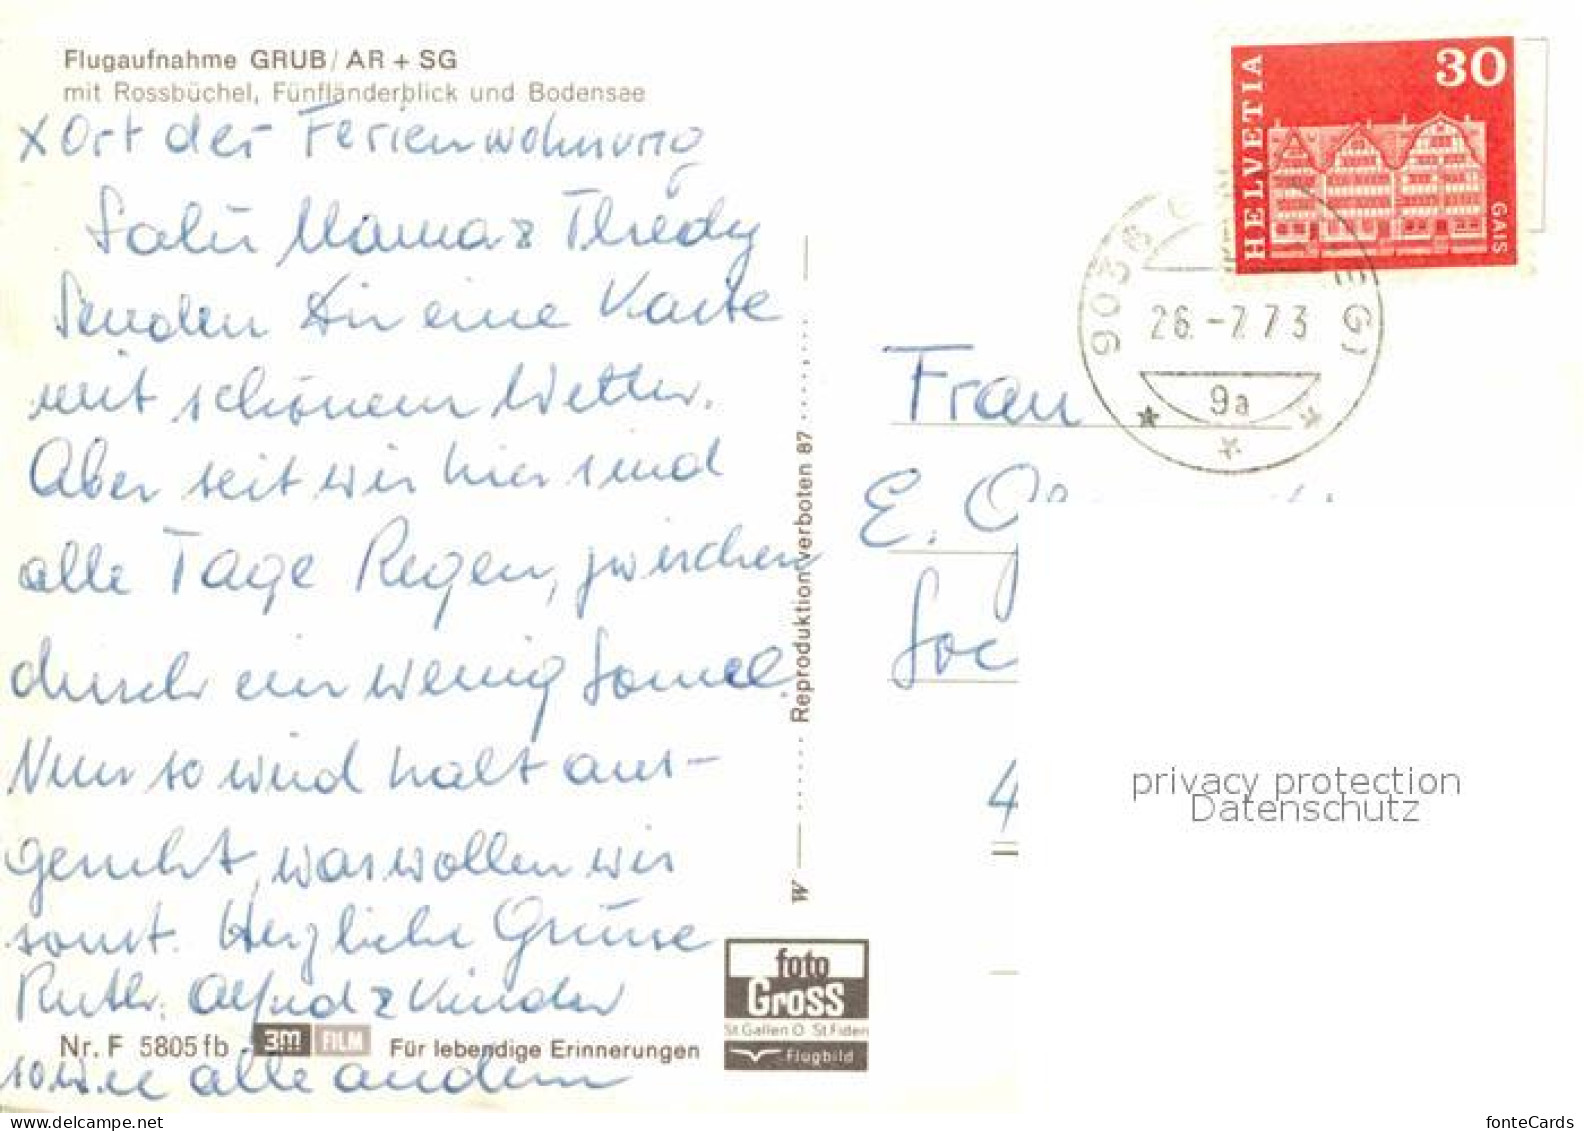 Flugaufnahme GRUB/AR + SG
mit Rossbüchel, Fünfländerblick und Bodensee
x Ort der Ferienwohnung
Salü Mama & Thedy
Senden Dir eine Karte
mit schönem Wetter.
Aber seit wir hier sind
alle Tage Regen, zwischen
durch ein wenig
Nun so wird halt aus-
geruht, was wollen wir
sonst. Herzliche Grüsse
Ruth, Alfred & Kinder
sowie alle andern
Nr. F 5805 fb 3M FILM Für lebendige Erinnerungen
W Reproduktion verboten 87
foto
Gross
St Gallen O St Fiden
Flugbild
HELVETIA
30
GAIS
9036
26.-7.73
9a
Frau
E. G
4
privacy protection
Datenschutz
fonteCards